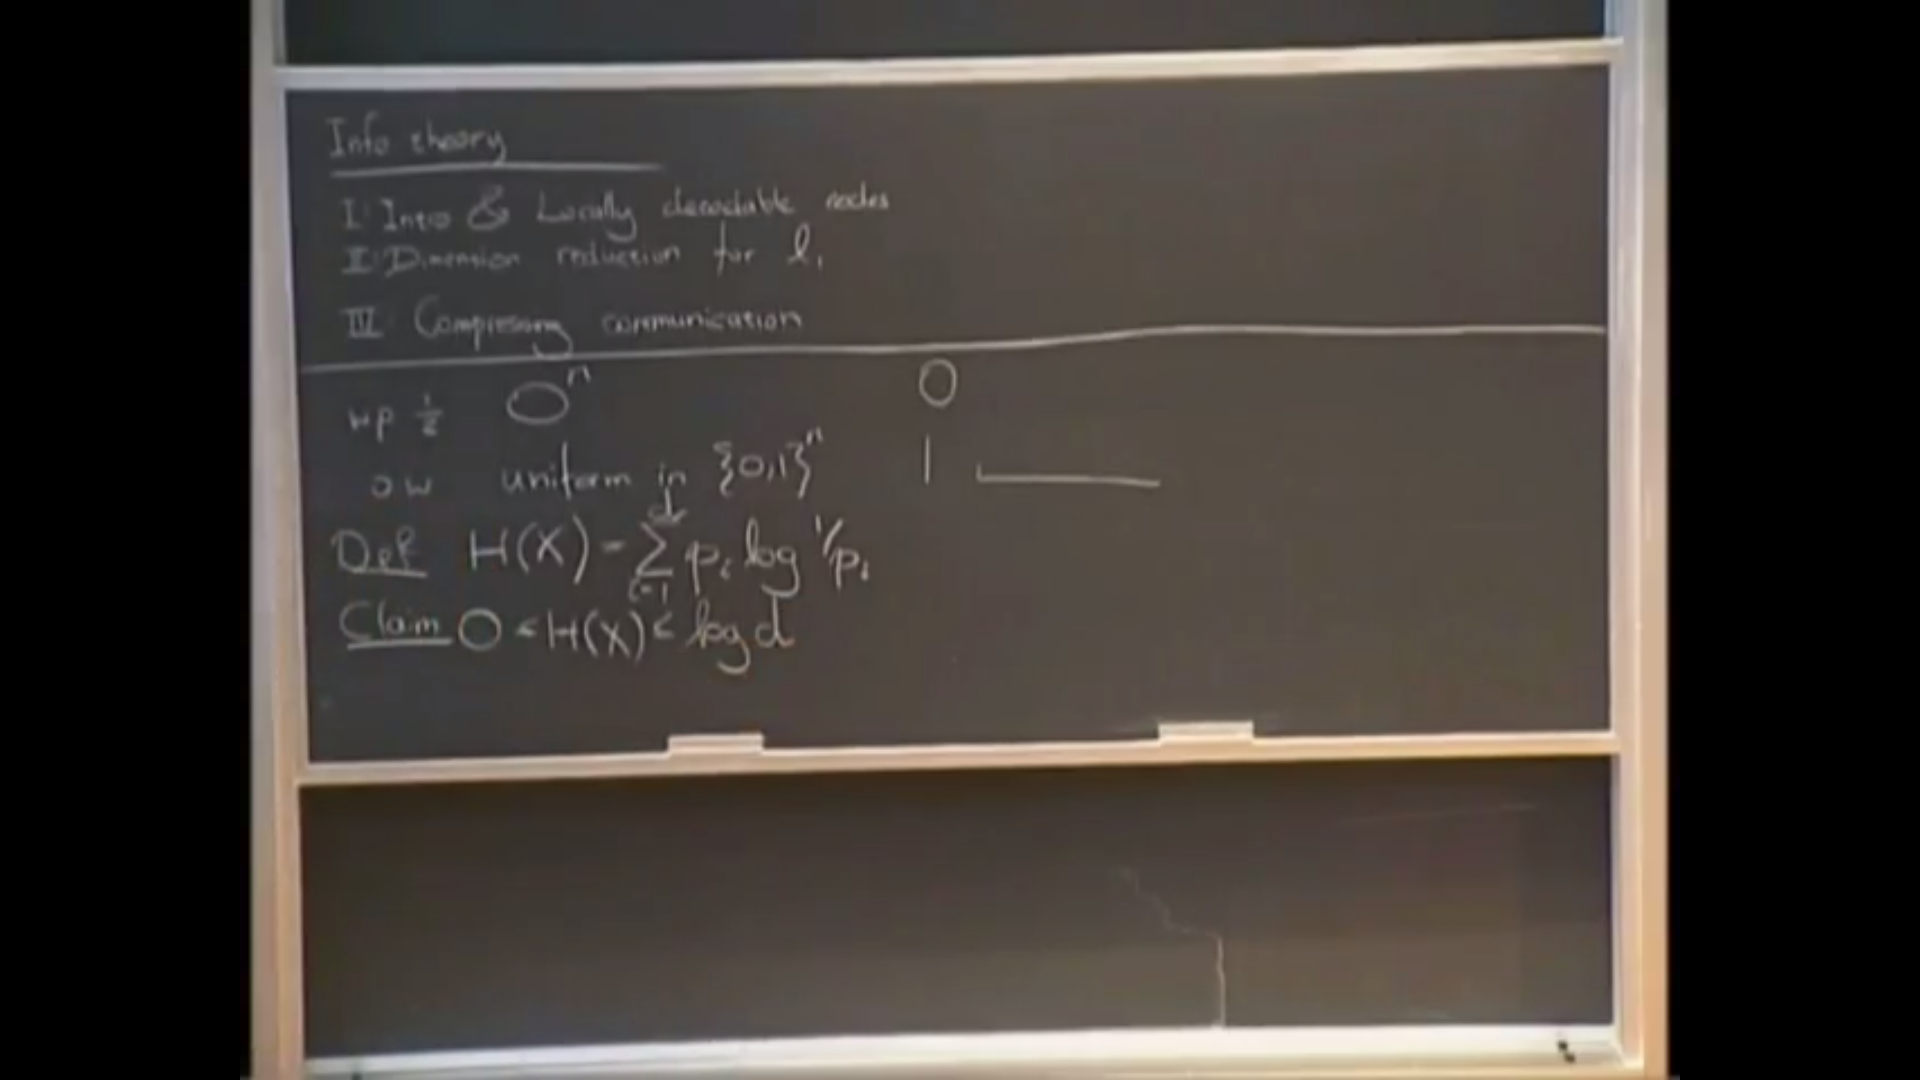 Info theory
I: Intro & Locally decodable codes
II: Dimension reduction for l₁
III: Compressing communication
wp ½ 0ⁿ 0
ow uniform in {0,1}ⁿ 1
Def H(X) = ∑ᵢ₌₁ᵈ pᵢ log 1/pᵢ
Claim 0 ≤ H(X) ≤ log d